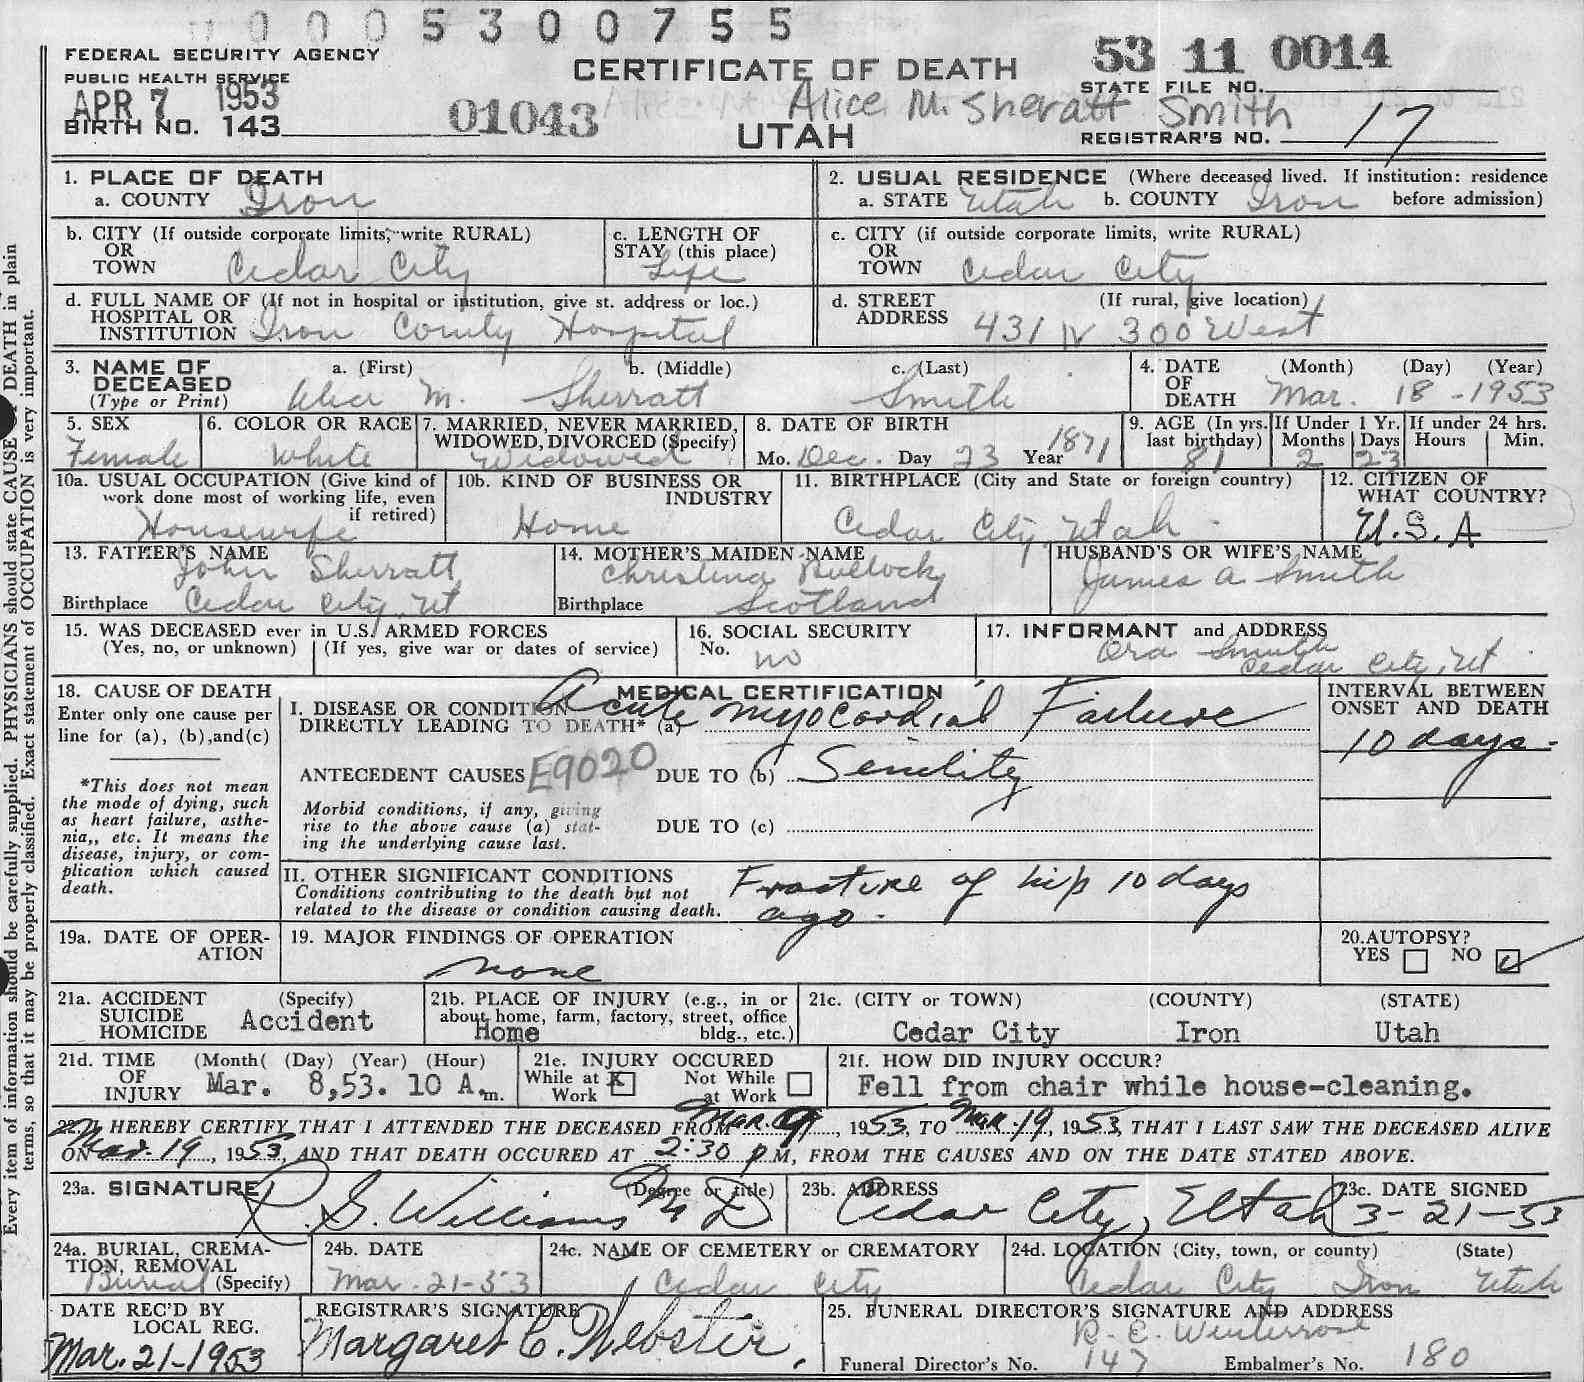 0 0 0 5 3 0 0 7 5 5
FEDERAL SECURITY AGENCY
PUBLIC HEALTH SERVICE
APR 7 1953
BIRTH NO. 143
01043
CERTIFICATE OF DEATH
Alice M. Sheratt Smith
UTAH
53 11 0014
STATE FILE NO.
REGISTRAR'S NO. 17
Every item of information should be carefully supplied. PHYSICIANS should state CAUSE DEATH in plain
terms, so that it may be properly classified. Exact statement of OCCUPATION is very important.
1. PLACE OF DEATH
a. COUNTY Iron
2. USUAL RESIDENCE (Where deceased lived. If institution: residence
a. STATE Utah b. COUNTY Iron before admission)
b. CITY (If outside corporate limits, write RURAL)
OR
TOWN Cedar City
c. LENGTH OF
STAY (this place)
Life
c. CITY (if outside corporate limits, write RURAL)
OR
TOWN Cedar City
d. FULL NAME OF (If not in hospital or institution, give st. address or loc.)
HOSPITAL OR
INSTITUTION Iron County Hospital
d. STREET (If rural, give location)
ADDRESS 431 N 300 West
3. NAME OF a. (First) b. (Middle) c. (Last)
DECEASED
(Type or Print) Alice M. Sherratt Smith
4. DATE (Month) (Day) (Year)
OF
DEATH Mar. 18 - 1953
5. SEX
Female
6. COLOR OR RACE
White
7. MARRIED, NEVER MARRIED,
WIDOWED, DIVORCED (Specify)
Widowed
8. DATE OF BIRTH
Mo. Dec. Day 23 Year 1871
9. AGE (In yrs. last birthday) 81
If Under 1 Yr. Months 2 Days 23
If under 24 hrs. Hours Min.
10a. USUAL OCCUPATION (Give kind of
work done most of working life, even
if retired)
Housewife
10b. KIND OF BUSINESS OR
INDUSTRY
Home
11. BIRTHPLACE (City and State or foreign country)
Cedar City, Utah
12. CITIZEN OF
WHAT COUNTRY?
U.S.A
13. FATHER'S NAME
John Sherratt
Birthplace Cedar City, Ut
14. MOTHER'S MAIDEN NAME
Christina Bullock
Birthplace Scotland
HUSBAND'S OR WIFE'S NAME
James A Smith
15. WAS DECEASED ever in U.S. ARMED FORCES
(Yes, no, or unknown) (If yes, give war or dates of service)
16. SOCIAL SECURITY
No. no
17. INFORMANT and ADDRESS
Ora Smith
Cedar City, Ut
18. CAUSE OF DEATH
Enter only one cause per
line for (a), (b), and (c)
*This does not mean
the mode of dying, such
as heart failure, asthe-
nia,, etc. It means the
disease, injury, or com-
plication which caused
death.
MEDICAL CERTIFICATION
I. DISEASE OR CONDITION
DIRECTLY LEADING TO DEATH* (a) Acute myocardial Failure
ANTECEDENT CAUSES E9020 DUE TO (b) Senility
Morbid conditions, if any, giving
rise to the above cause (a) stat-
ing the underlying cause last.
DUE TO (c)
INTERVAL BETWEEN
ONSET AND DEATH
10 days -
II. OTHER SIGNIFICANT CONDITIONS
Conditions contributing to the death but not
related to the disease or condition causing death.
Fracture of hip 10 days
ago.
19a. DATE OF OPER-
ATION
19. MAJOR FINDINGS OF OPERATION
none
20. AUTOPSY?
YES NO
21a. ACCIDENT (Specify)
SUICIDE
HOMICIDE Accident
21b. PLACE OF INJURY (e.g., in or
about home, farm, factory, street, office
bldg., etc.)
Home
21c. (CITY or TOWN) (COUNTY) (STATE)
Cedar City Iron Utah
21d. TIME (Month( (Day) (Year) (Hour)
OF
INJURY Mar. 8,53. 10 A.m.
21e. INJURY OCCURED
While at Work X Not While at Work
21f. HOW DID INJURY OCCUR?
Fell from chair while house-cleaning.
22. I HEREBY CERTIFY THAT I ATTENDED THE DECEASED FROM Mar. 1953, TO Mar. 19, 1953, THAT I LAST SAW THE DECEASED ALIVE
ON Mar. 19, 1953, AND THAT DEATH OCCURED AT 2:30 P.M, FROM THE CAUSES AND ON THE DATE STATED ABOVE.
23a. SIGNATURE (Degree or title)
R. G. Williams M D
23b. ADDRESS
Cedar City, Utah
23c. DATE SIGNED
3-21-53
24a. BURIAL, CREMA-
TION, REMOVAL
Burial (Specify)
24b. DATE
Mar. 21-53
24c. NAME OF CEMETERY or CREMATORY
Cedar City
24d. LOCATION (City, town, or county) (State)
Cedar City Iron Utah
DATE REC'D BY
LOCAL REG.
Mar. 21-1953
REGISTRAR'S SIGNATURE
Margaret C. Webster.
25. FUNERAL DIRECTOR'S SIGNATURE AND ADDRESS
R. E. Winterrose
Funeral Director's No. 147 Embalmer's No. 180